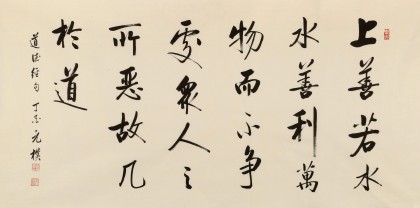 上善若水
水善利萬
物而不争
處衆人之
所惡故几
於道
道德经句 丁亥 元樸